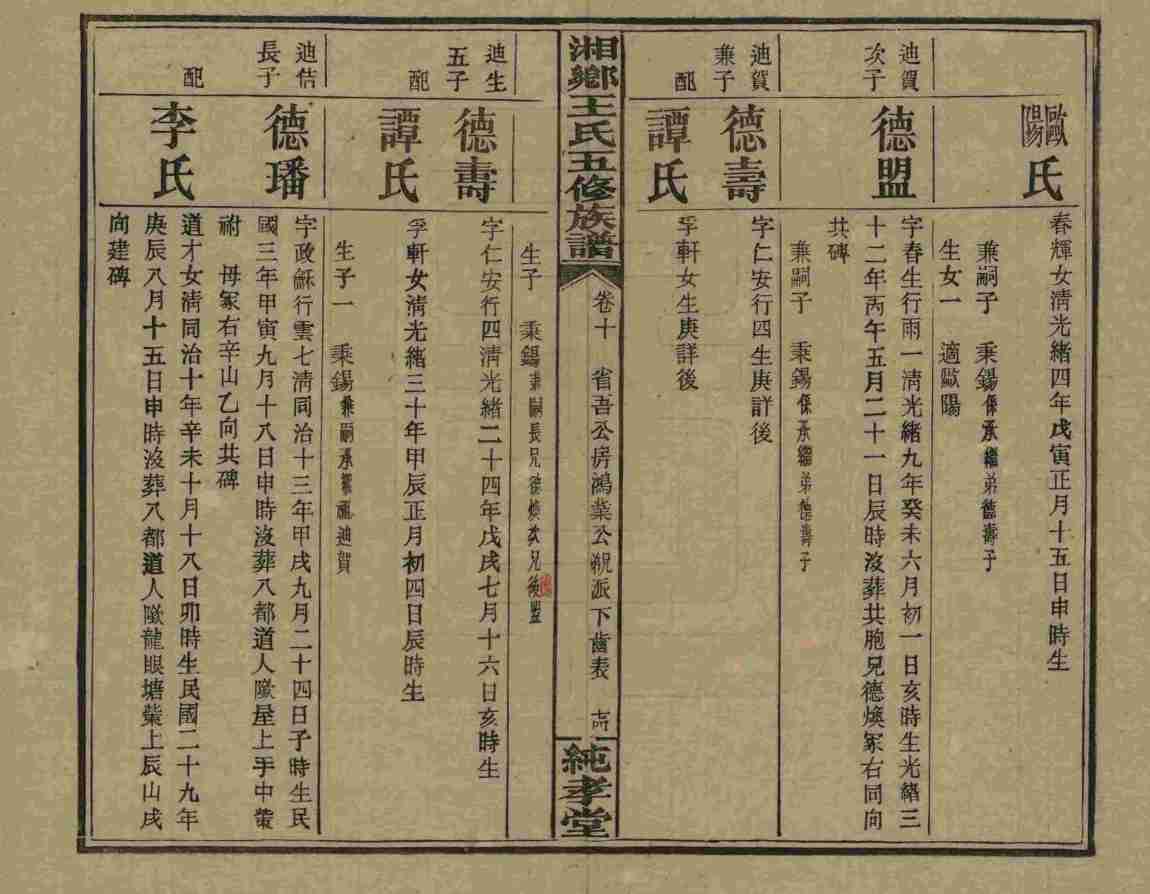 歐陽氏
春輝女清光緒四年戊寅正月十五日申時生
兼嗣子 秉錫係承繼弟德壽子
生女一 適歐陽
迪賀
次子
德盟
字春生行雨一清光緒九年癸未六月初一日亥時生光緒三
十二年丙午五月二十一日辰時沒葬共胞兄德煥冢右同向
共碑
兼嗣子 秉錫係承繼弟德壽子
迪賀
兼子
德壽
字仁安行四生庚詳後
配
譚氏
孚軒女生庚詳後
湘鄉王氏五修族譜
卷十 省吾公房鴻業公派下齒表
純孝堂
生子 秉錫兼嗣長兄德煥次兄後盟
迪生
五子
德壽
字仁安行四清光緒二十四年戊戌七月十六日亥時生
配
譚氏
孚軒女清光緒三十年甲辰正月初四日辰時生
生子一 秉錫兼嗣承繼迪賀
迪佶
長子
德璠
字政龢行雲七清同治十三年甲戌九月二十四日子時生民
國三年甲寅九月十八日申時沒葬八都道人墩屋上手中塋
祔 母冢右辛山乙向共碑
配
李氏
道才女清同治十年辛未十月十八日卯時生民國二十九年
庚辰八月十五日申時沒葬八都道人墩龍眼塘塋上辰山戌
向建碑